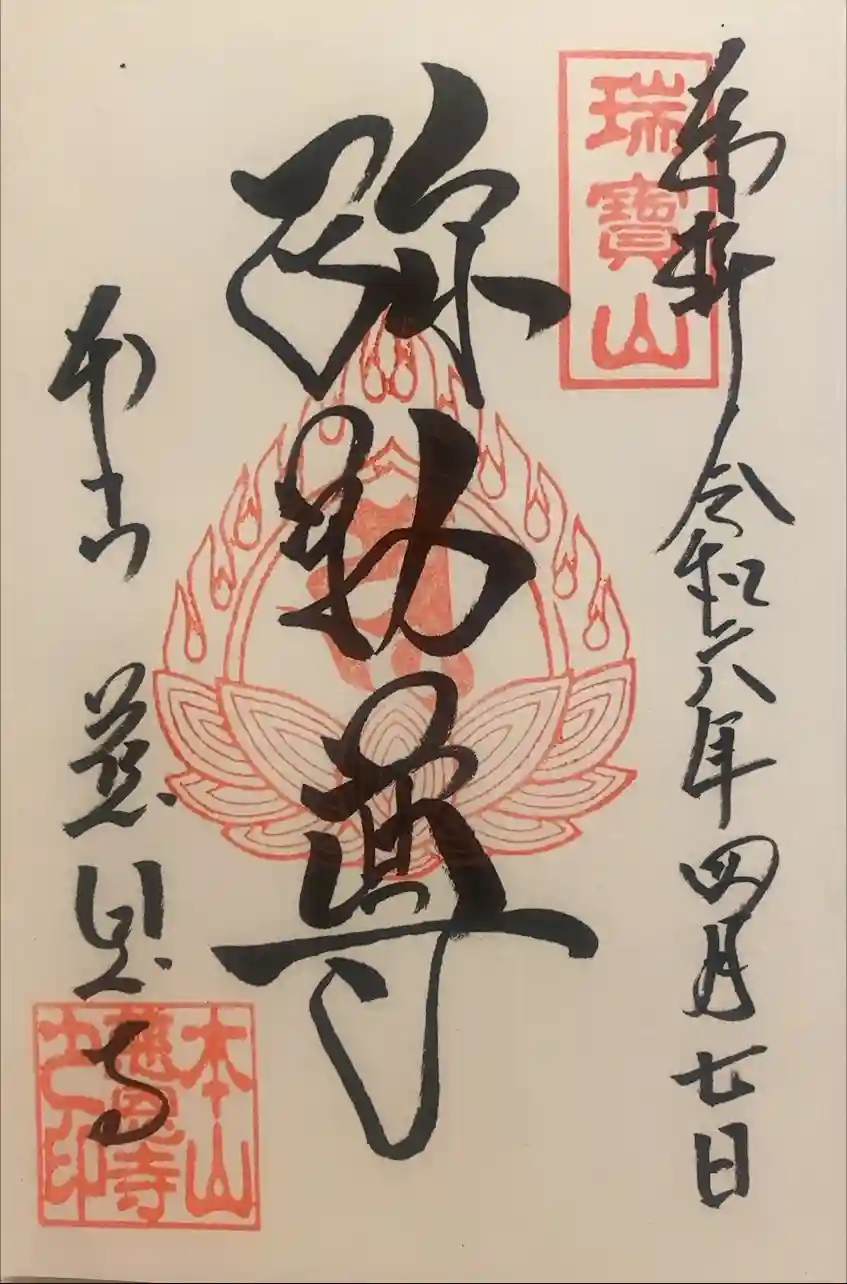 奉拝 令和六年四月七日
瑞寳山
弥勒尊
本山 慈恩寺
本山
慈恩寺
之印